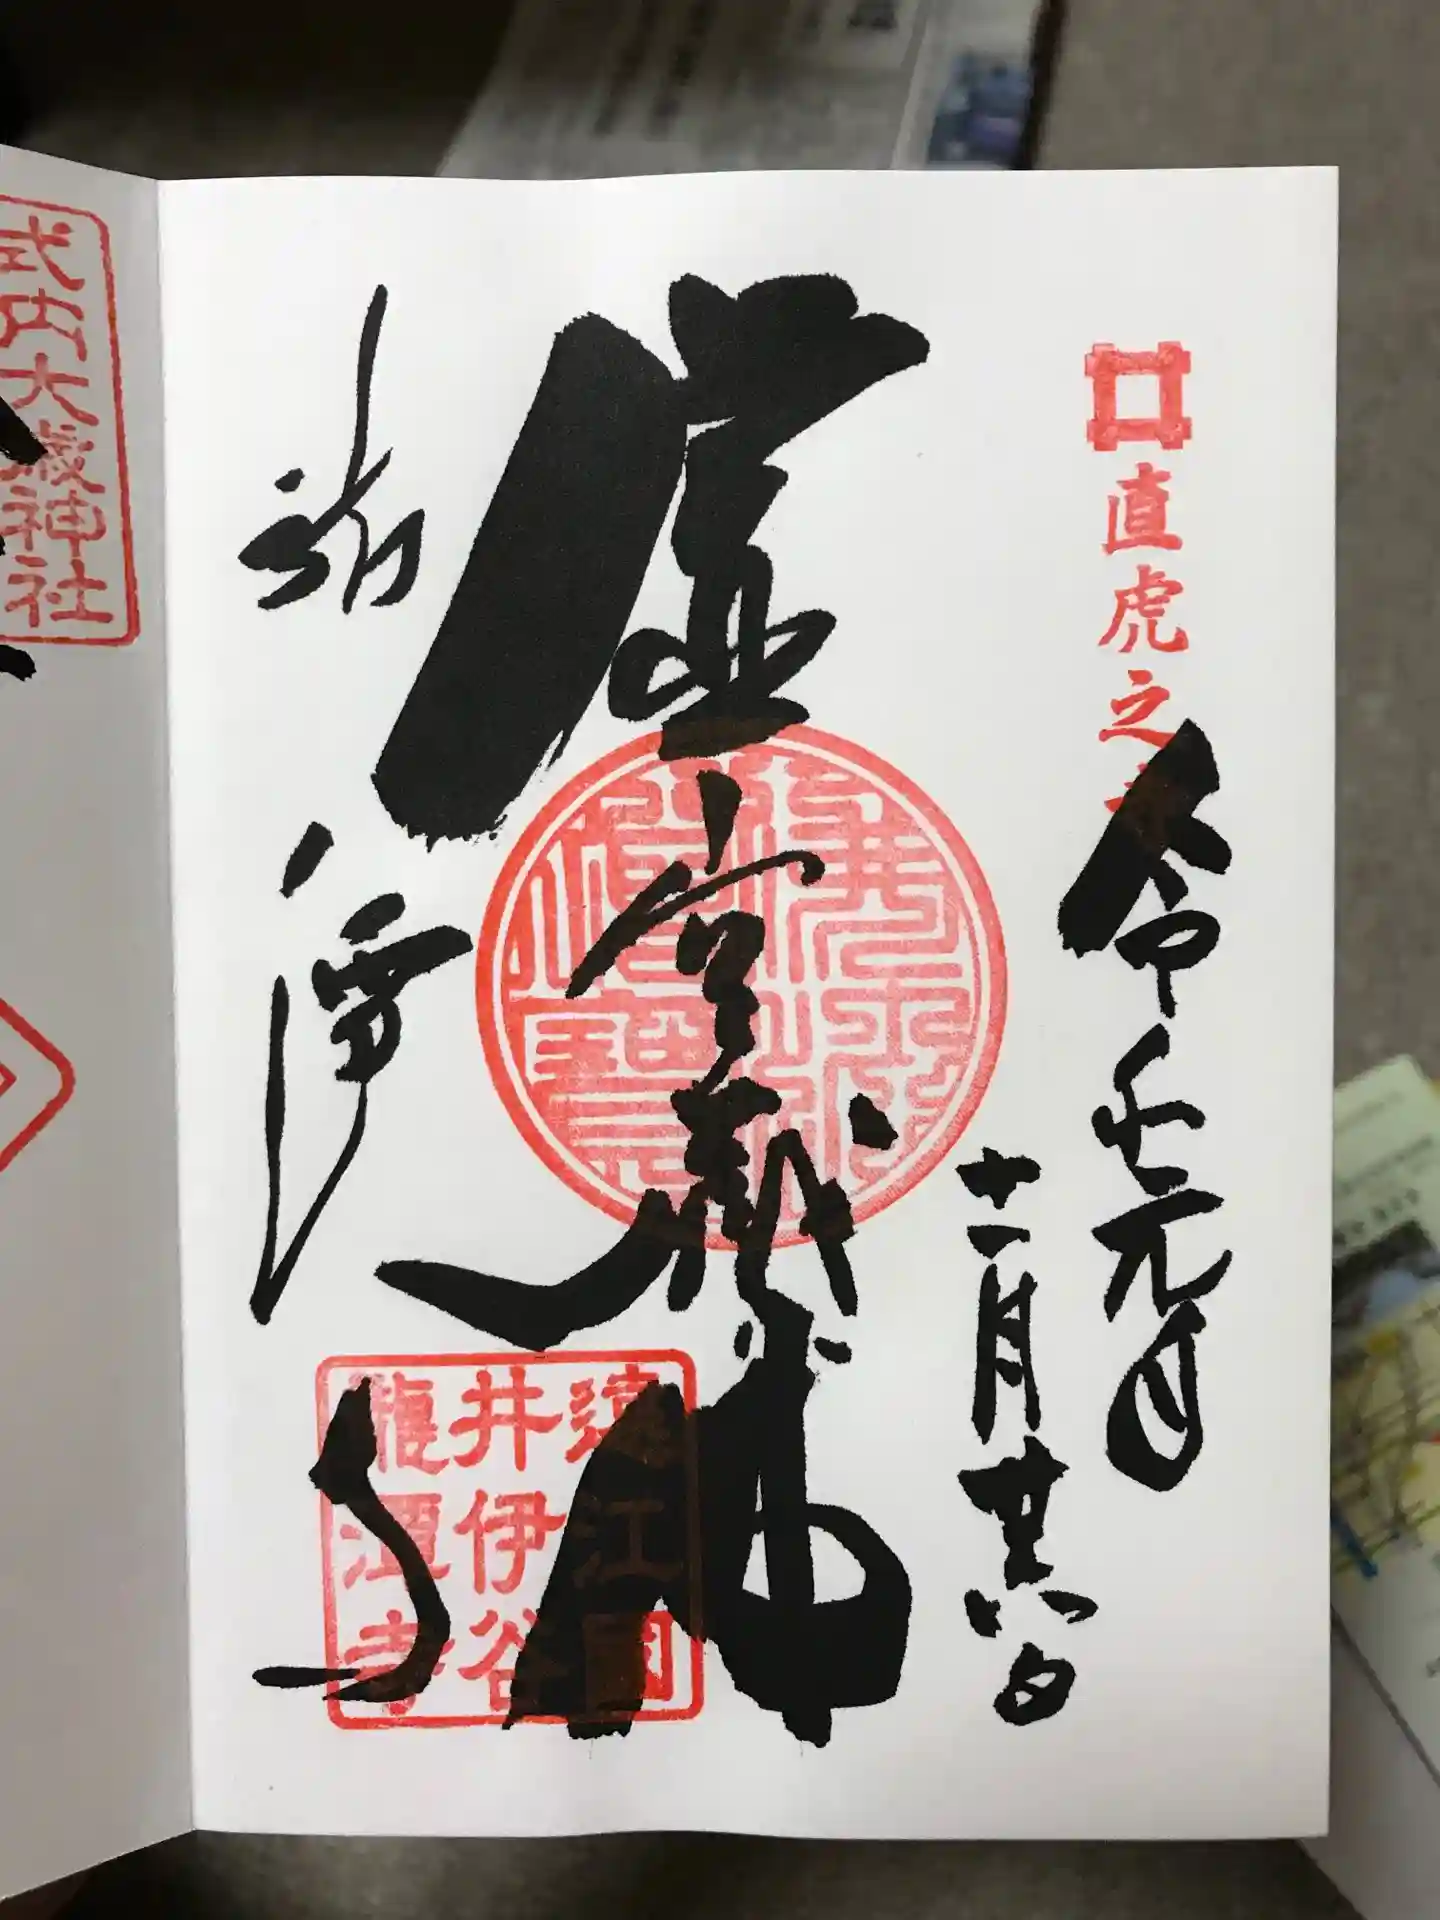 直虎之
令和元年
十一月廿六日
虚空蔵
佛
龍潭寺
遠江國
井伊谷
龍潭寺
式内大歳神社